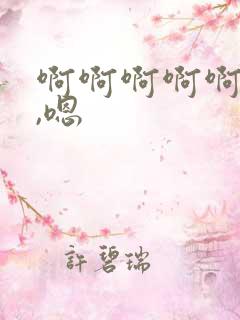 啊啊啊啊啊
,嗯
許碧瑞